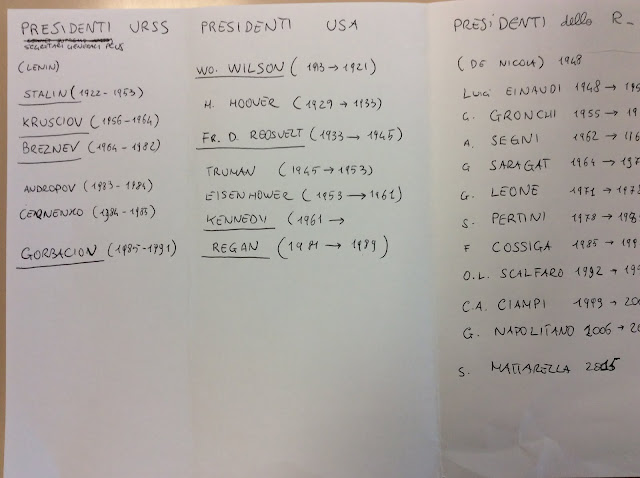 PRESIDENTI URSS
SEGRETARI GENERALI PCUS
(LENIN)
STALIN (1922-1953)
KRUSCIOV (1956-1964)
BREZNEV (1964-1982)
ANDROPOV (1983-1984)
CERNENKO (1984-1985)
GORBACIOV (1985-1991)
PRESIDENTI USA
WO. WILSON (1913 → 1921)
H. HOOVER (1929 → 1933)
FR. D. ROOSVELT (1933 → 1945)
TRUMAN (1945 → 1953)
EISENHOWER (1953 → 1961)
KENNEDY (1961 →
REGAN (1981 → 1989)
PRESIDENTI dello R_
(DE NICOLA) 1948
LUIGI EINAUDI 1948 → 195
G. GRONCHI 1955 → 19
A. SEGNI 1962 → 196
G SARAGAT 1964 → 197
G. LEONE 1971 → 1978
S. PERTINI 1978 → 198
F COSSIGA 1985 → 199
O.L. SCALFARO 1992 → 199
C.A. CIAMPI 1999 → 200
G. NAPOLITANO 2006 → 20
S. MATTARELLA 2015